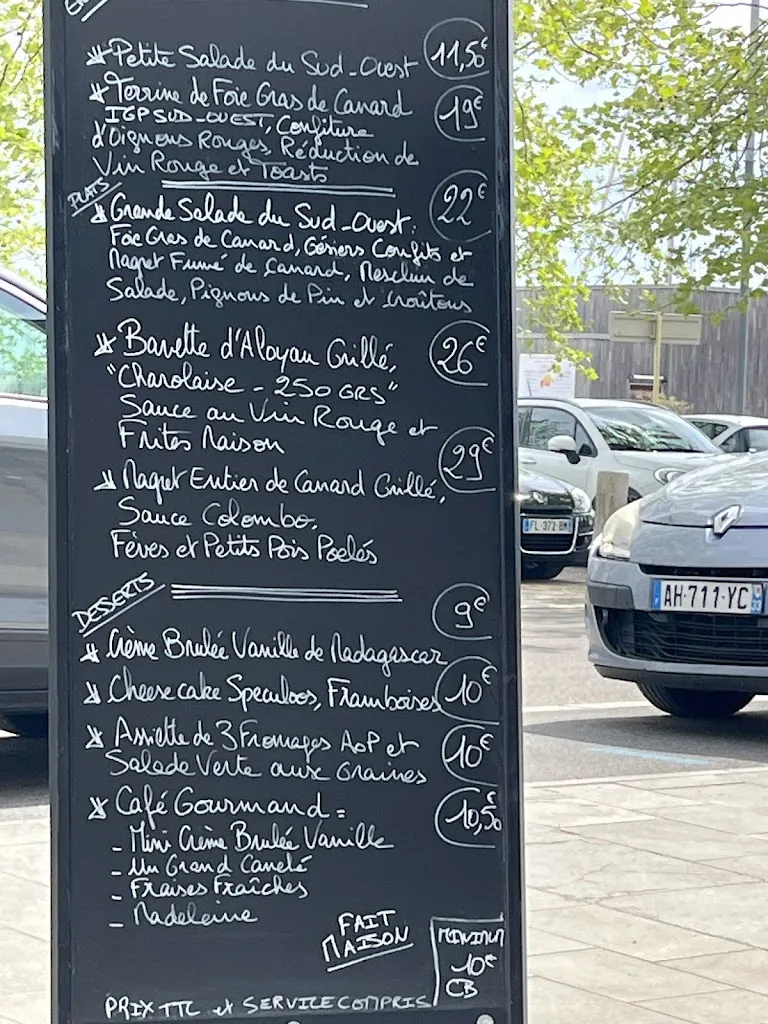 Petite Salade du Sud-Ouest 11,50€
Terrine de Foie Gras de Canard 19€
IGP SUD-OUEST, Confiture
d'Oignons Rouges, Réduction de
Vin Rouge et Toasts
PLATS
Grande Salade du Sud-Ouest: 22€
Foie Gras de Canard, Gésiers Confits et
Magret Fumé de Canard, Mesclun de
Salade, Pignons de Pin et Croûtons
Bavette d'Aloyau Grillé, 26€
"Charolaise - 250 GRS"
Sauce au Vin Rouge et
Frites Maison
Magret Entier de Canard Grillé, 29€
Sauce Colombo,
Fèves et Petits Pois Poelés
DESSERTS
Crème Brulée Vanille de Madagascar 9€
Cheesecake Speculoos, Framboises 10€
Assiette de 3 Fromages AOP et 10€
Salade Verte aux Graines
Café Gourmand = 10,50
- Mini Crème Brulée Vanille
- Un Grand Canelé
- Fraises Fraîches
- Madeleine
FAIT
MAISON
MINIMUM
10€
CB
PRIX TTC et SERVICE COMPRIS
FL-372-BM
AH-711-YC